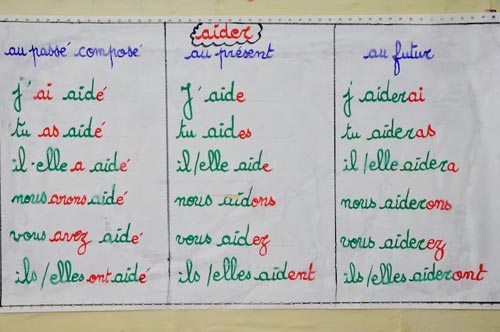 aider
au passé composé au présent au futur
j'ai aidé J'aide j'aiderai
tu as aidé tu aides tu aideras
il-elle a aidé il/elle aide il/elle aidera
nous avons aidé nous aidons nous aiderons
vous avez aidé vous aidez vous aiderez
ils/elles ont aidé ils/elles aident ils/elles aideront